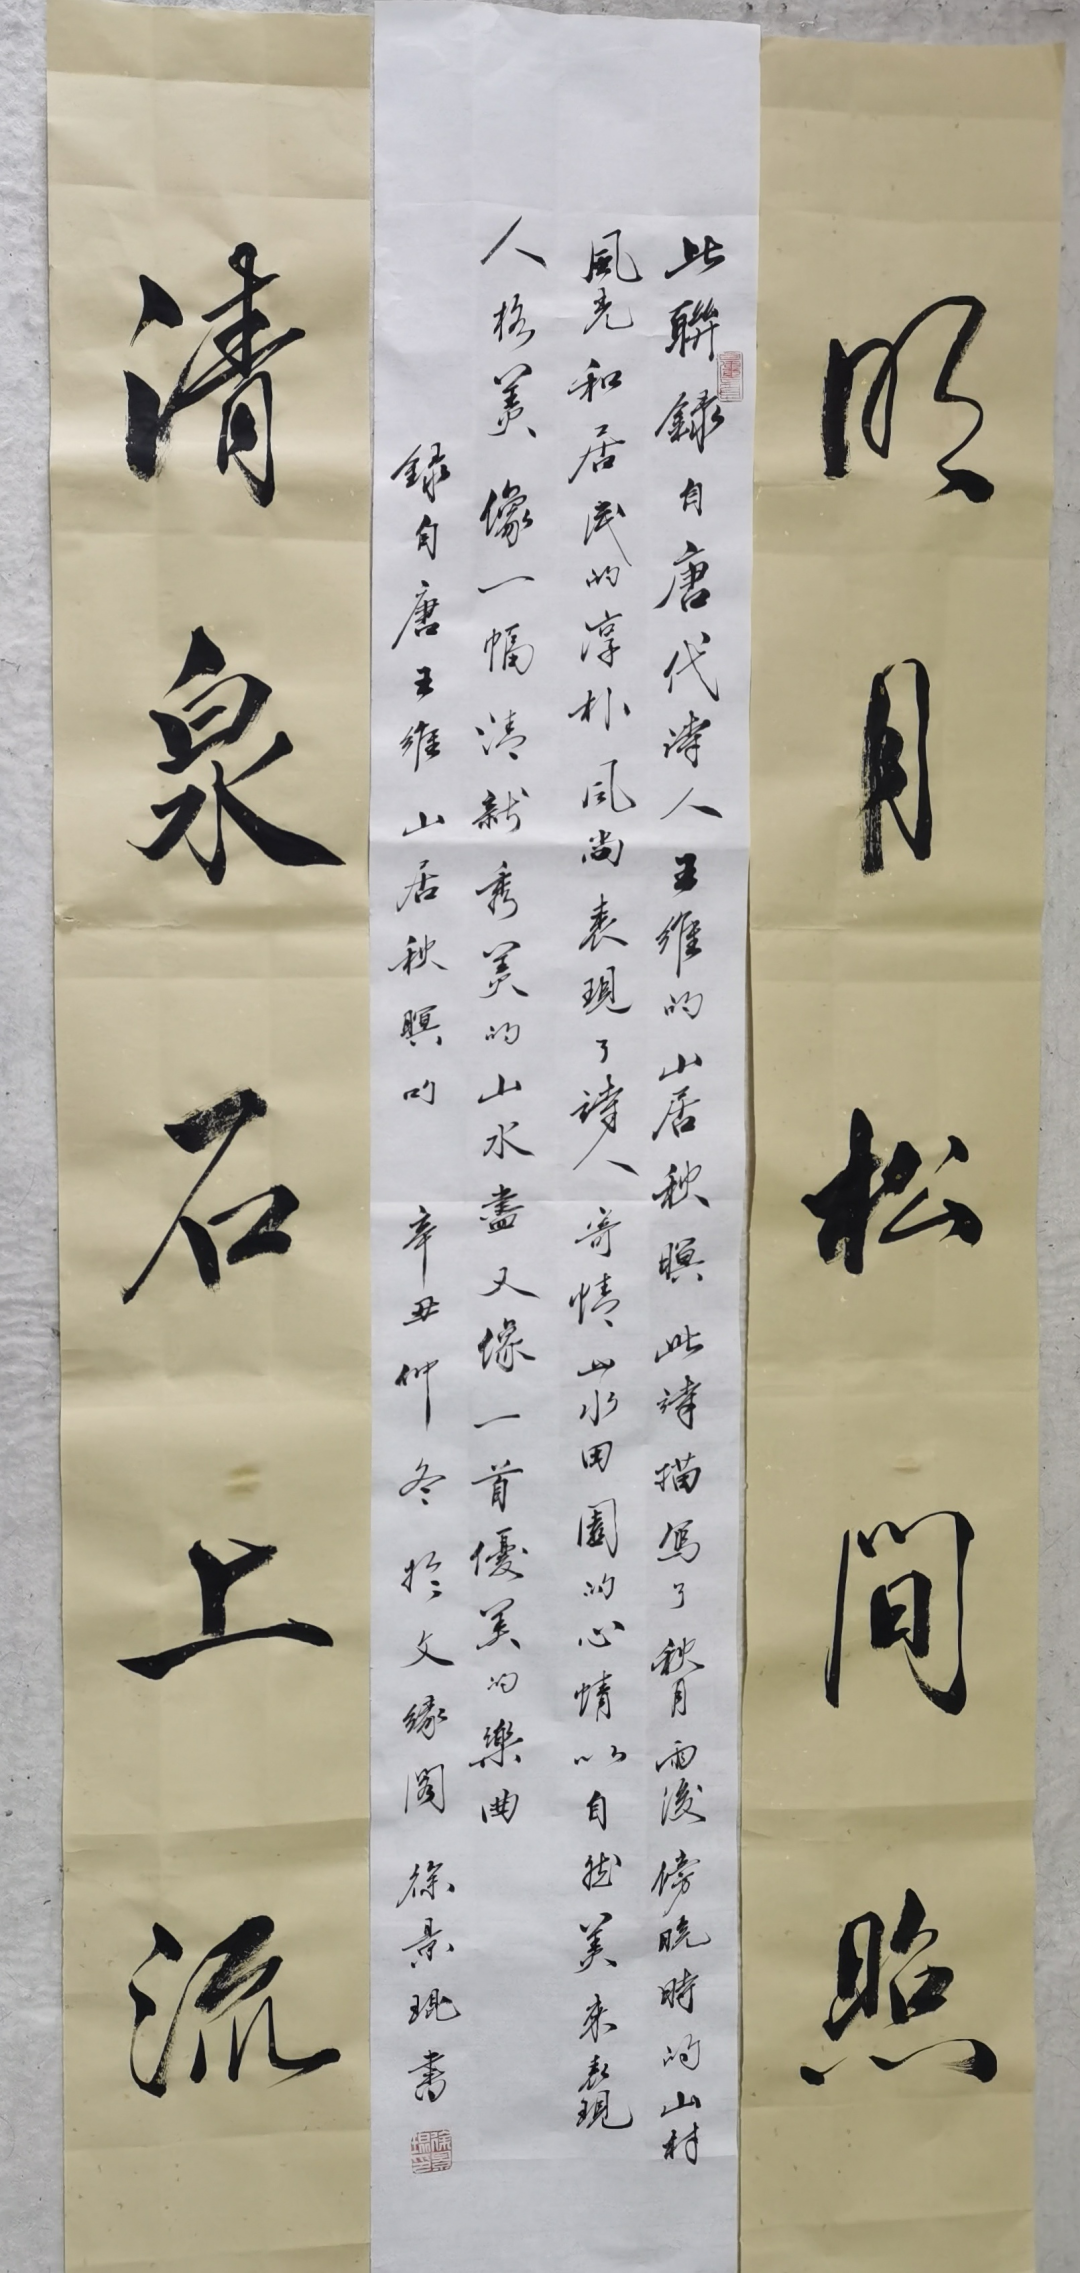 明月松間照
此聯録自唐代詩人王維的山居秋暝此詩描寫了秋月雨後傍晚時的山村
風光和居民的淳朴風尚表現了詩人寄情山水田園的心情以自然美来表現
人格美像一幅清新秀美的山水畫又像一首優美的樂曲
録自唐王維山居秋暝句辛丑仲冬於文缘阁徐景琨書
清泉石上流